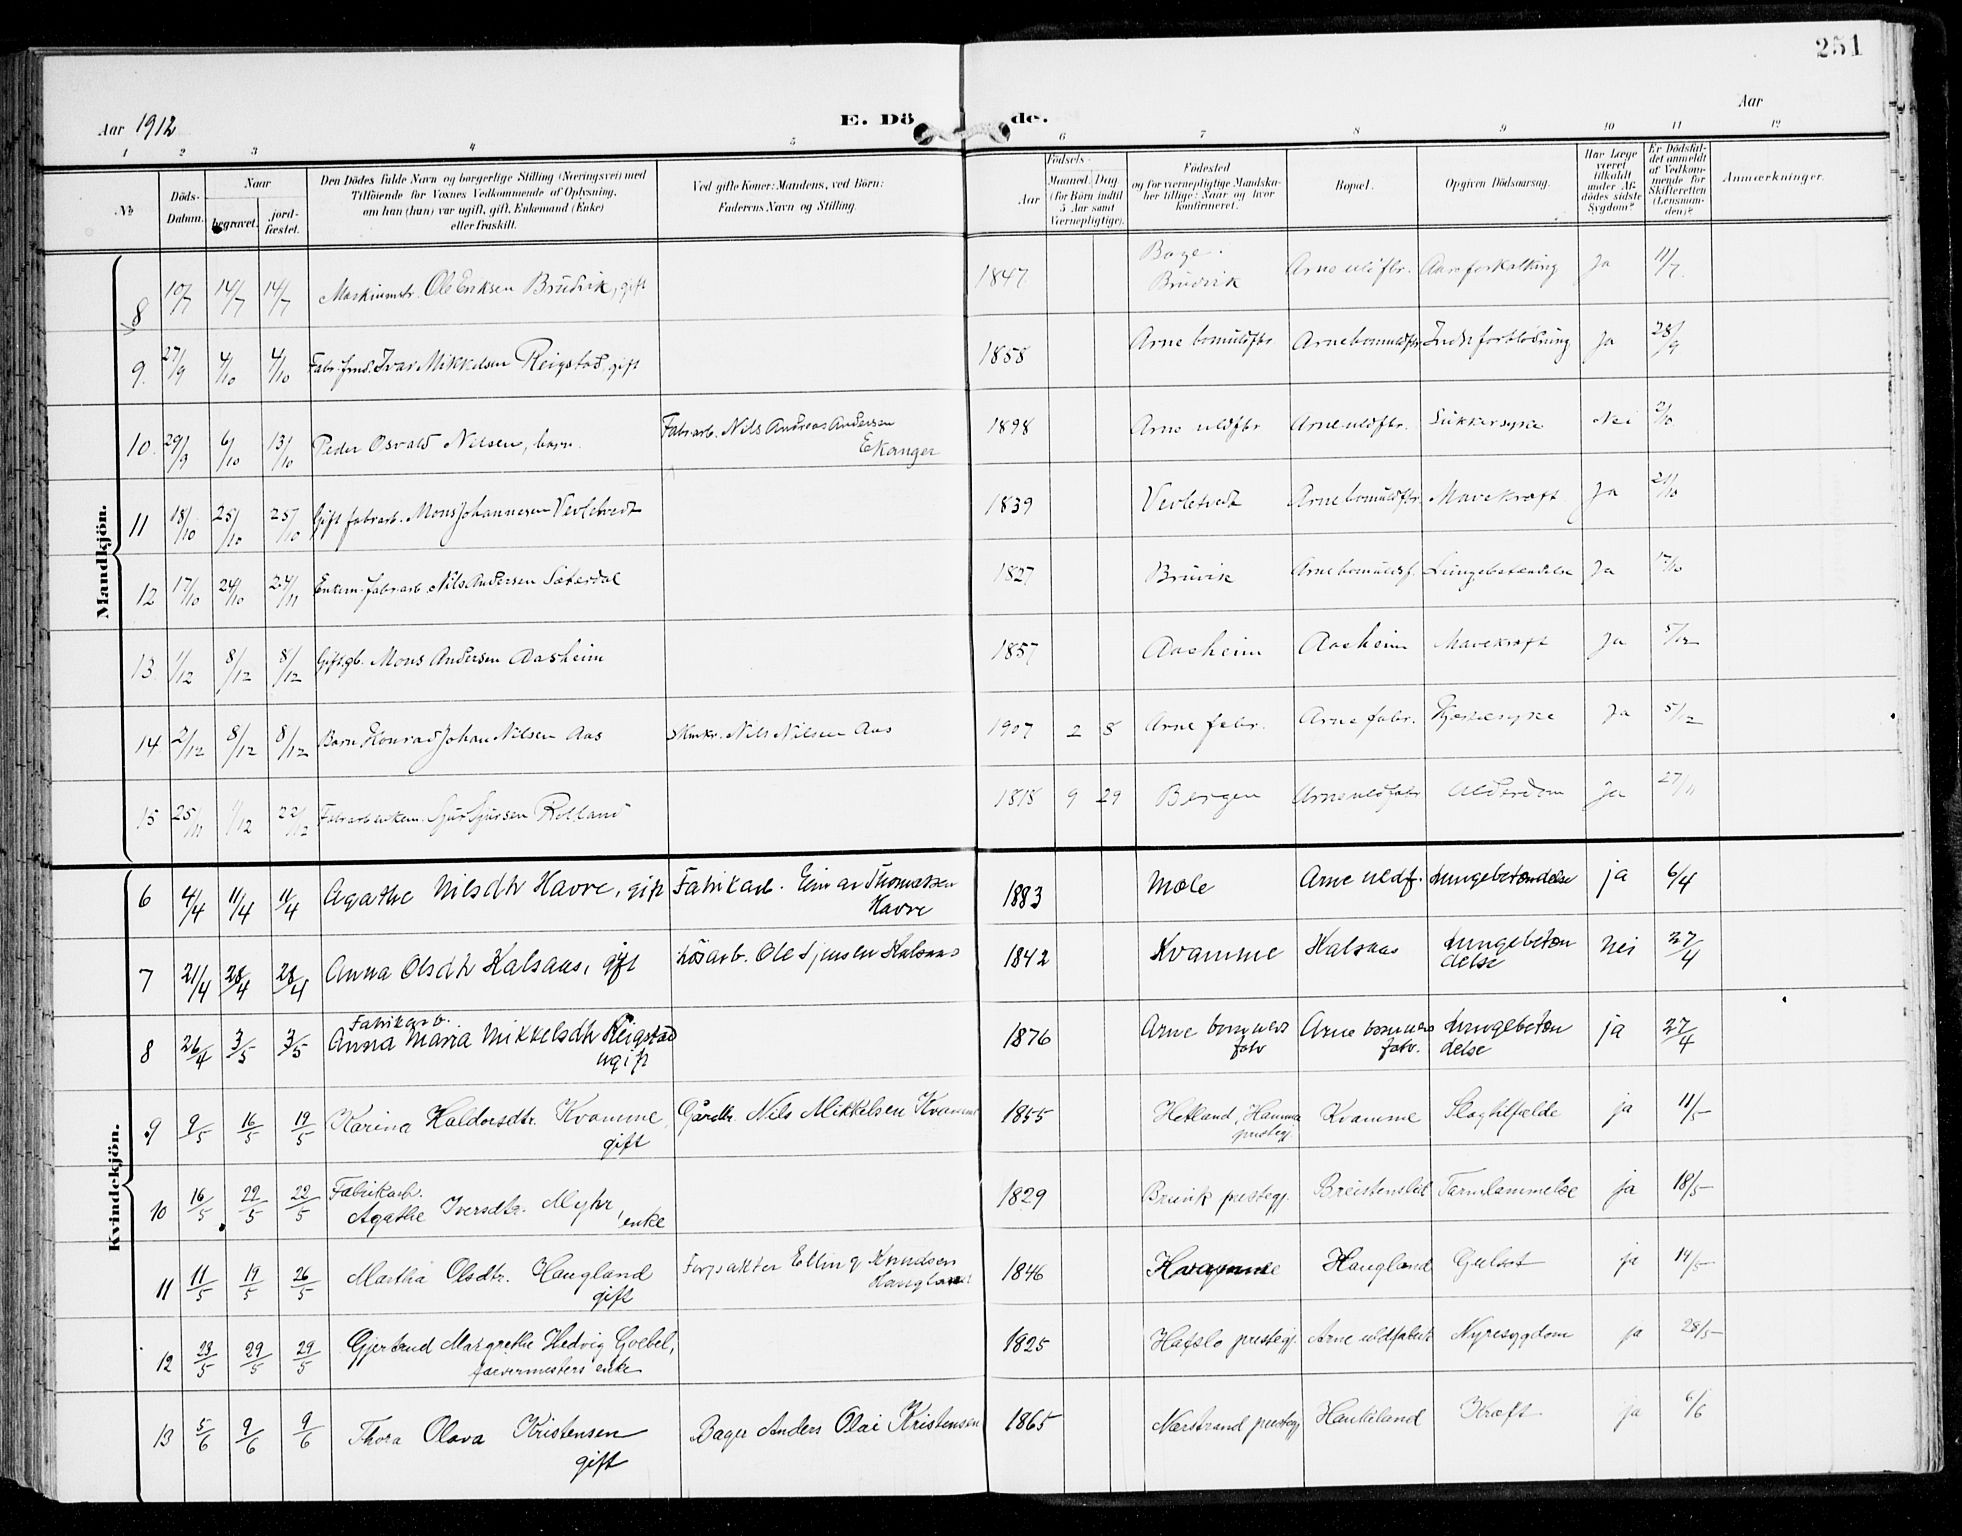 251
Aar 1912
E. Dö de.
Aar
1 2 3 4 5 6 7 8 9 10 11 12
No
Döds-Datum.
Naar
begravet.
jord-fæstet.
Den Dödes fulde Navn og borgerlige Stilling (Næringsvei) med
Tilföiende for Voxnes Vedkommende af Oplysning,
om han (hun) var ugift, gift, Enkemand (Enke)
eller fraskilt.
Ved gifte Koner: Mandens, ved Börn:
Faderens Navn og Stilling.
Födsels-
Aar
Maaned. Dag
(for Börn indtil
5 Aar samt
Værnepligtige).
Födested
og for værnepligtige Mandska-
ber tillige: Naar og hvor
konfirmeret.
Bopæl.
Opgiven Dödsaarsag.
Har Læge
været
tilkaldt
under Af-
dödes sidste
Sygdom?
Er Dödsfal-
det anmeldt
af Vedkom-
mende for
Skifteretten
(Lensman-
den)?
Anmærkninger.
Mandkjön.
8 10/7 14/7 14/7 Maskinmstr. Ole Eriksen Brudvik, gift 1847 Brudvik Arne uldfbr. Aareforkalkning Ja 11/7
9. 27/9 4/10 4/10 Fabr.frmd. Ivar Mikkelsen Reigstad, gift 1858 Arne bomuldfbr. Arne bomuldfbr. Indv. forblödning Ja 28/9
10. 29/9 6/10 13/10 Peder Osvald Nilsen, barn. Fabrarb. Nils Andreas Andersen Ekanger 1898 Arne uldfbr Arne uldfbr. Sukkersyke Nei 2/10
11 18/10 25/10 25/10 Gift fabrarb. Mons Johannesen Vevletvedt 1839 Vevletvedt Arne bomuldfbr. Mavekræft Ja 21/10
12 17/10 24/10 24/11 Enkem. fabrarb. Nils Andersen Sæterdal 1827 Bruvik Arne bomuldsf. Lungebetændelse Ja 17/10
13. 1/12 8/12 8/12 Gift gb. Mons Andersen Aasheim 1857 Aasheim Aasheim Mavekræft Ja 5/12
14 2/12 8/12 8/12 Barn Konrad Johan Nilsen Aas Nils Nilsen Aas 1907 2 8 Arne fabr. Arne fabr. Ja 5/12
15 25/11 1/12 22/12 Fabrarb enkem. Sjur Sjursen Rolland 1818 9 29 Bergen Arne uldfabr Alderdom Ja 27/11
Kvindekjön.
6 4/4 11/4 11/4 Agathe Nilsdtr Havre, gift Fabrikarb. Einar Thomassen Havre 1883 Mæle Arne uldf. Lungebetændelse ja 6/4
7 21/4 28/4 28/4 Anna Olsdtr Kalsaas, gift Lösarb. Ole Kalsaas 1842 Kvamme Kalsaas Lungebetændelse nei 27/4
8 26/4 3/5 3/5 Fabrikarb. Anna Maria Mikkelsdtr Reigstad ugift 1876 Arne bomulds fabr Arne bomulds fabr. Lungebetændelse ja 27/4
9 9/5 16/5 19/5 Karina Haldorsdtr. Kvamme, gift Gårdbr. Nils Mikkelsen Kvamme 1855 Hetland, Hamma prestegj. Kvamme Slagtilfælde ja 11/5
10 16/5 22/5 22/5 Fabrikarb. Agathe Iversdtr. Myhr, enke 1829 Bruvik prestegj. Breistenslid Tarmlammelse ja 18/5
11 11/5 19/5 26/5 Martha Olsdtr. Haugland gift Forpakter Elling Knudsen Haugland 1846 Kvamme Haugland Gulsot ja 14/5
12 23/5 29/5 29/5 Gjertrud Margrethe Hedvig Goebel, farvermesters enke 1825 Hafslo prestegj. Arne uldfabrik Nyresygdom ja 28/5
13 5/6 9/6 9/6 Thora Olava Kristensen gift Bager Anders Olai Kristensen 1865 Nærstrand prestegj Haukeland Kræft ja 6/6